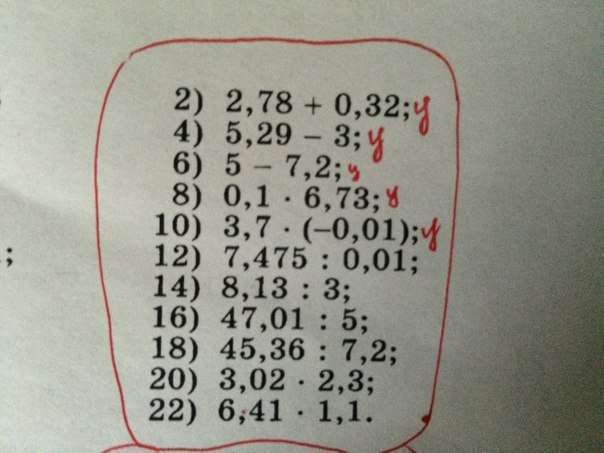 2) 2,78 + 0,32; у
4) 5,29 – 3; у
6) 5 – 7,2; у
8) 0,1 · 6,73; у
10) 3,7 · (–0,01); у
12) 7,475 : 0,01;
14) 8,13 : 3;
16) 47,01 : 5;
18) 45,36 : 7,2;
20) 3,02 · 2,3;
22) 6,41 · 1,1.
;